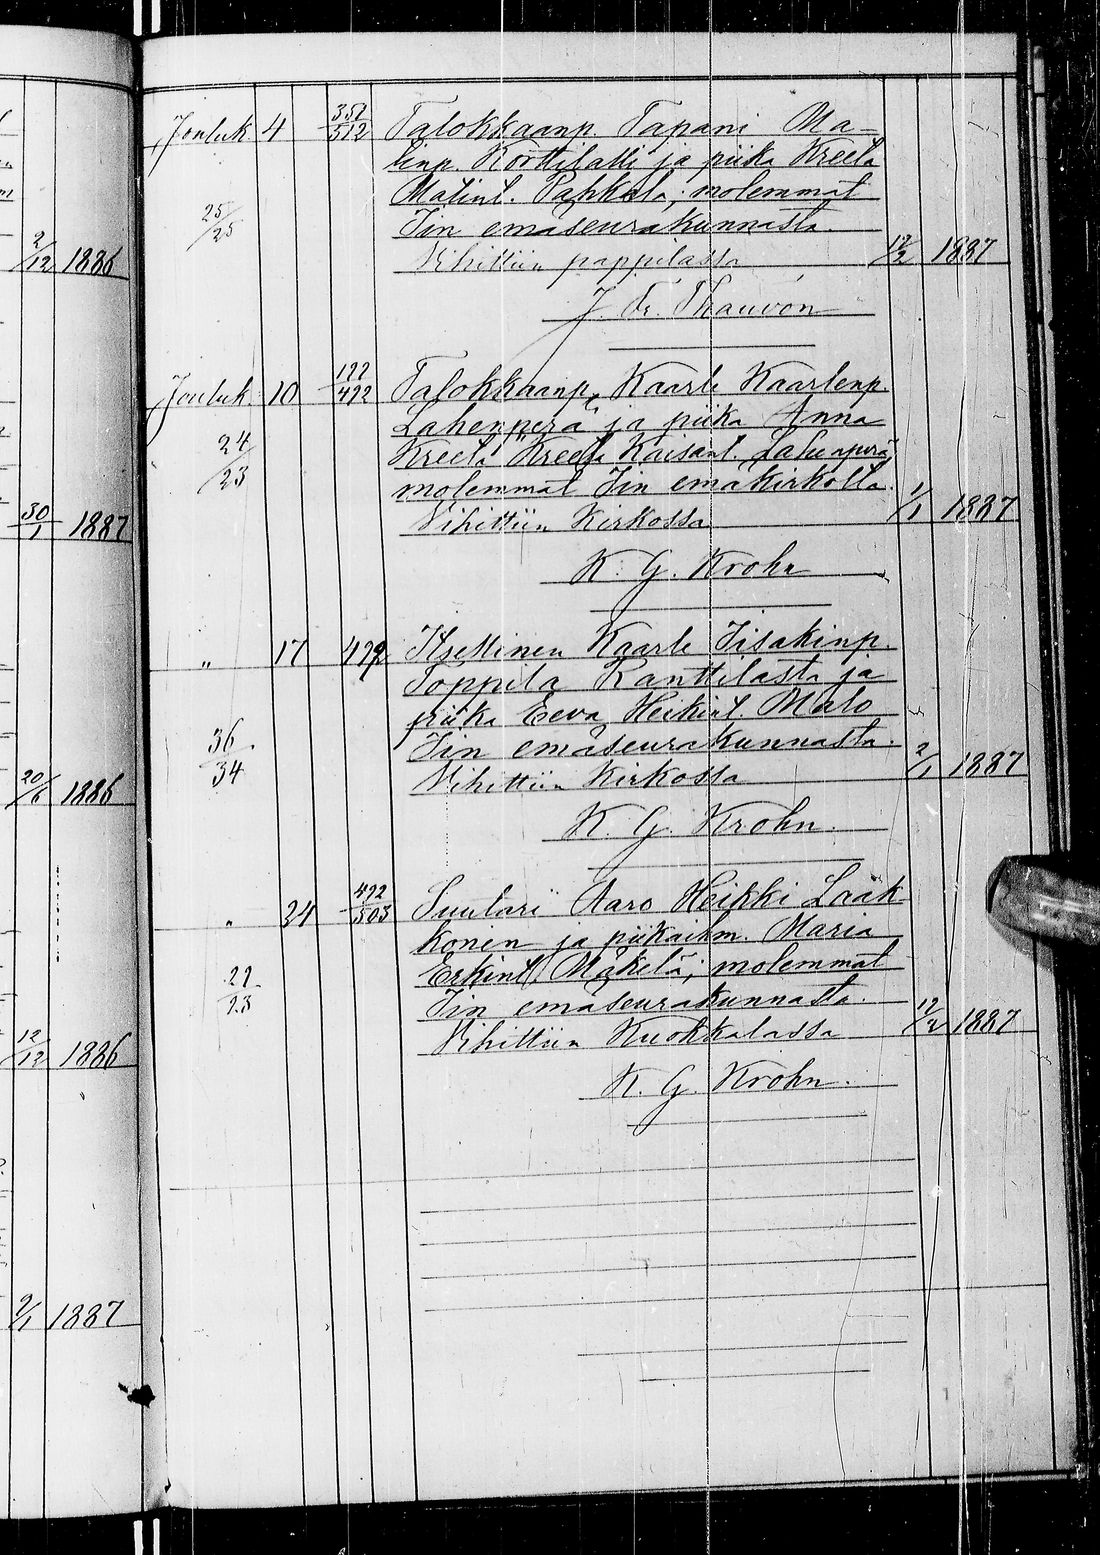 2/12 1886
30/1 1887
20/6 1886
12/12 1886
2/1 1887
Jouluk. 4 351/512 Talokkaanp. Tapani Ma-
tinp. Korttilatti ja piika Kreeta
25/25 Matint. Pahkala; molemmat
Iin emäseurakunnasta.
Vihittiin pappilassa 12/2 1887
J. Fr. Thauvón
Jouluk. 10 122/492 Talokkaanp. Kaarle Kaarlenp.
Lahenperä ja piika Anna
24/23 Kreeta Kreeta Kaisant. Lahenperä
molemmat Iin emäkirkolta.
Vihittiin Kirkossa 1/1 1887
K. G. Krohn
" 17 492 Itsellinen Kaarle Iisakinp.
Toppila Kanttilasta ja
piika Eeva Heikint. Malo
36/34 Iin emäseurakunnasta.
Vihittiin Kirkossa 2/1 1887
K. G. Krohn.
" 24 492/503 Suutari Aaro Heikki Lääk-
konen ja piikaihm. Maria
22/23 Erkint. Mäkelä; molemmat
Iin emäseurakunnasta.
Vihittiin Kuokkalassa 12/2 1887
K. G. Krohn.